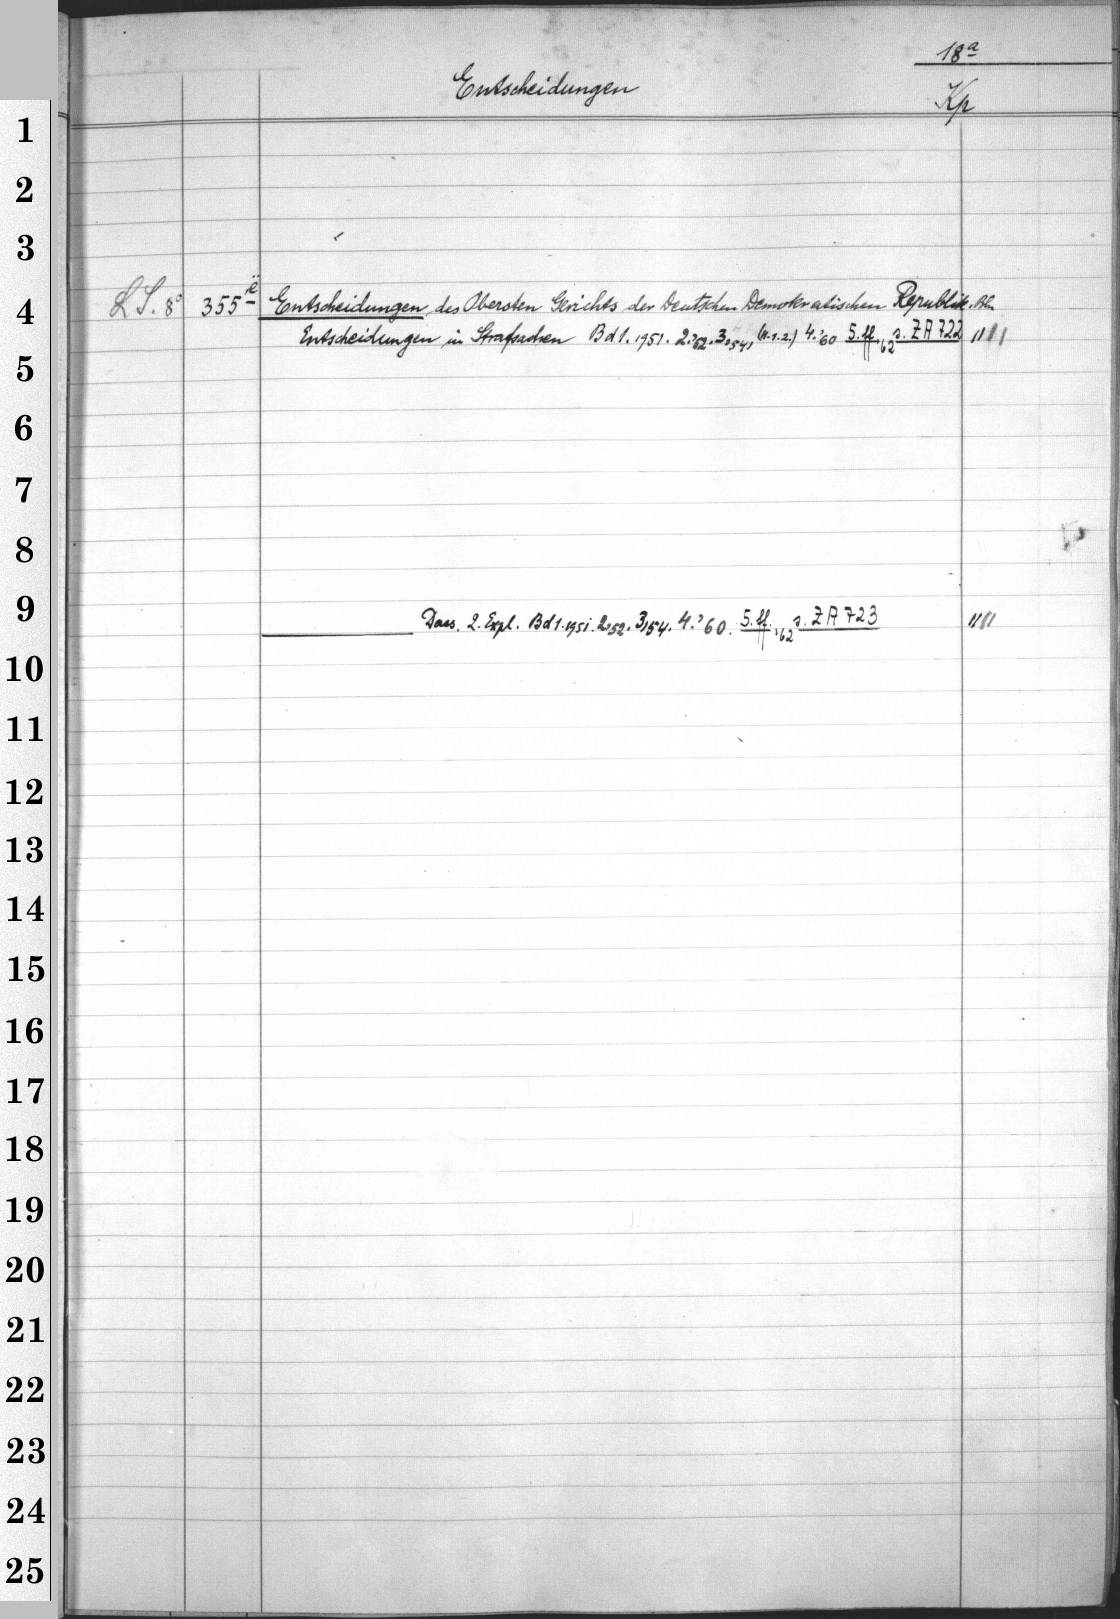 18a
Entscheidungen
Kp
LS. 8° 355 ë Entscheidungen des Obersten Gerichts der Deutschen Demokratischen Republik. Bln.
Entscheidungen in Strafsachen Bd 1. 1951. 2.'52. 3.'54. (N.1.2.) 4.'60 5.ff.'62 s. ZA 722 ||||
Dass. 2. Expl. Bd 1. 1951. 2.'52. 3.'54. 4.'60. 5.ff.'62 s. ZA 723 ||||
1
2
3
4
5
6
7
8
9
10
11
12
13
14
15
16
17
18
19
20
21
22
23
24
25